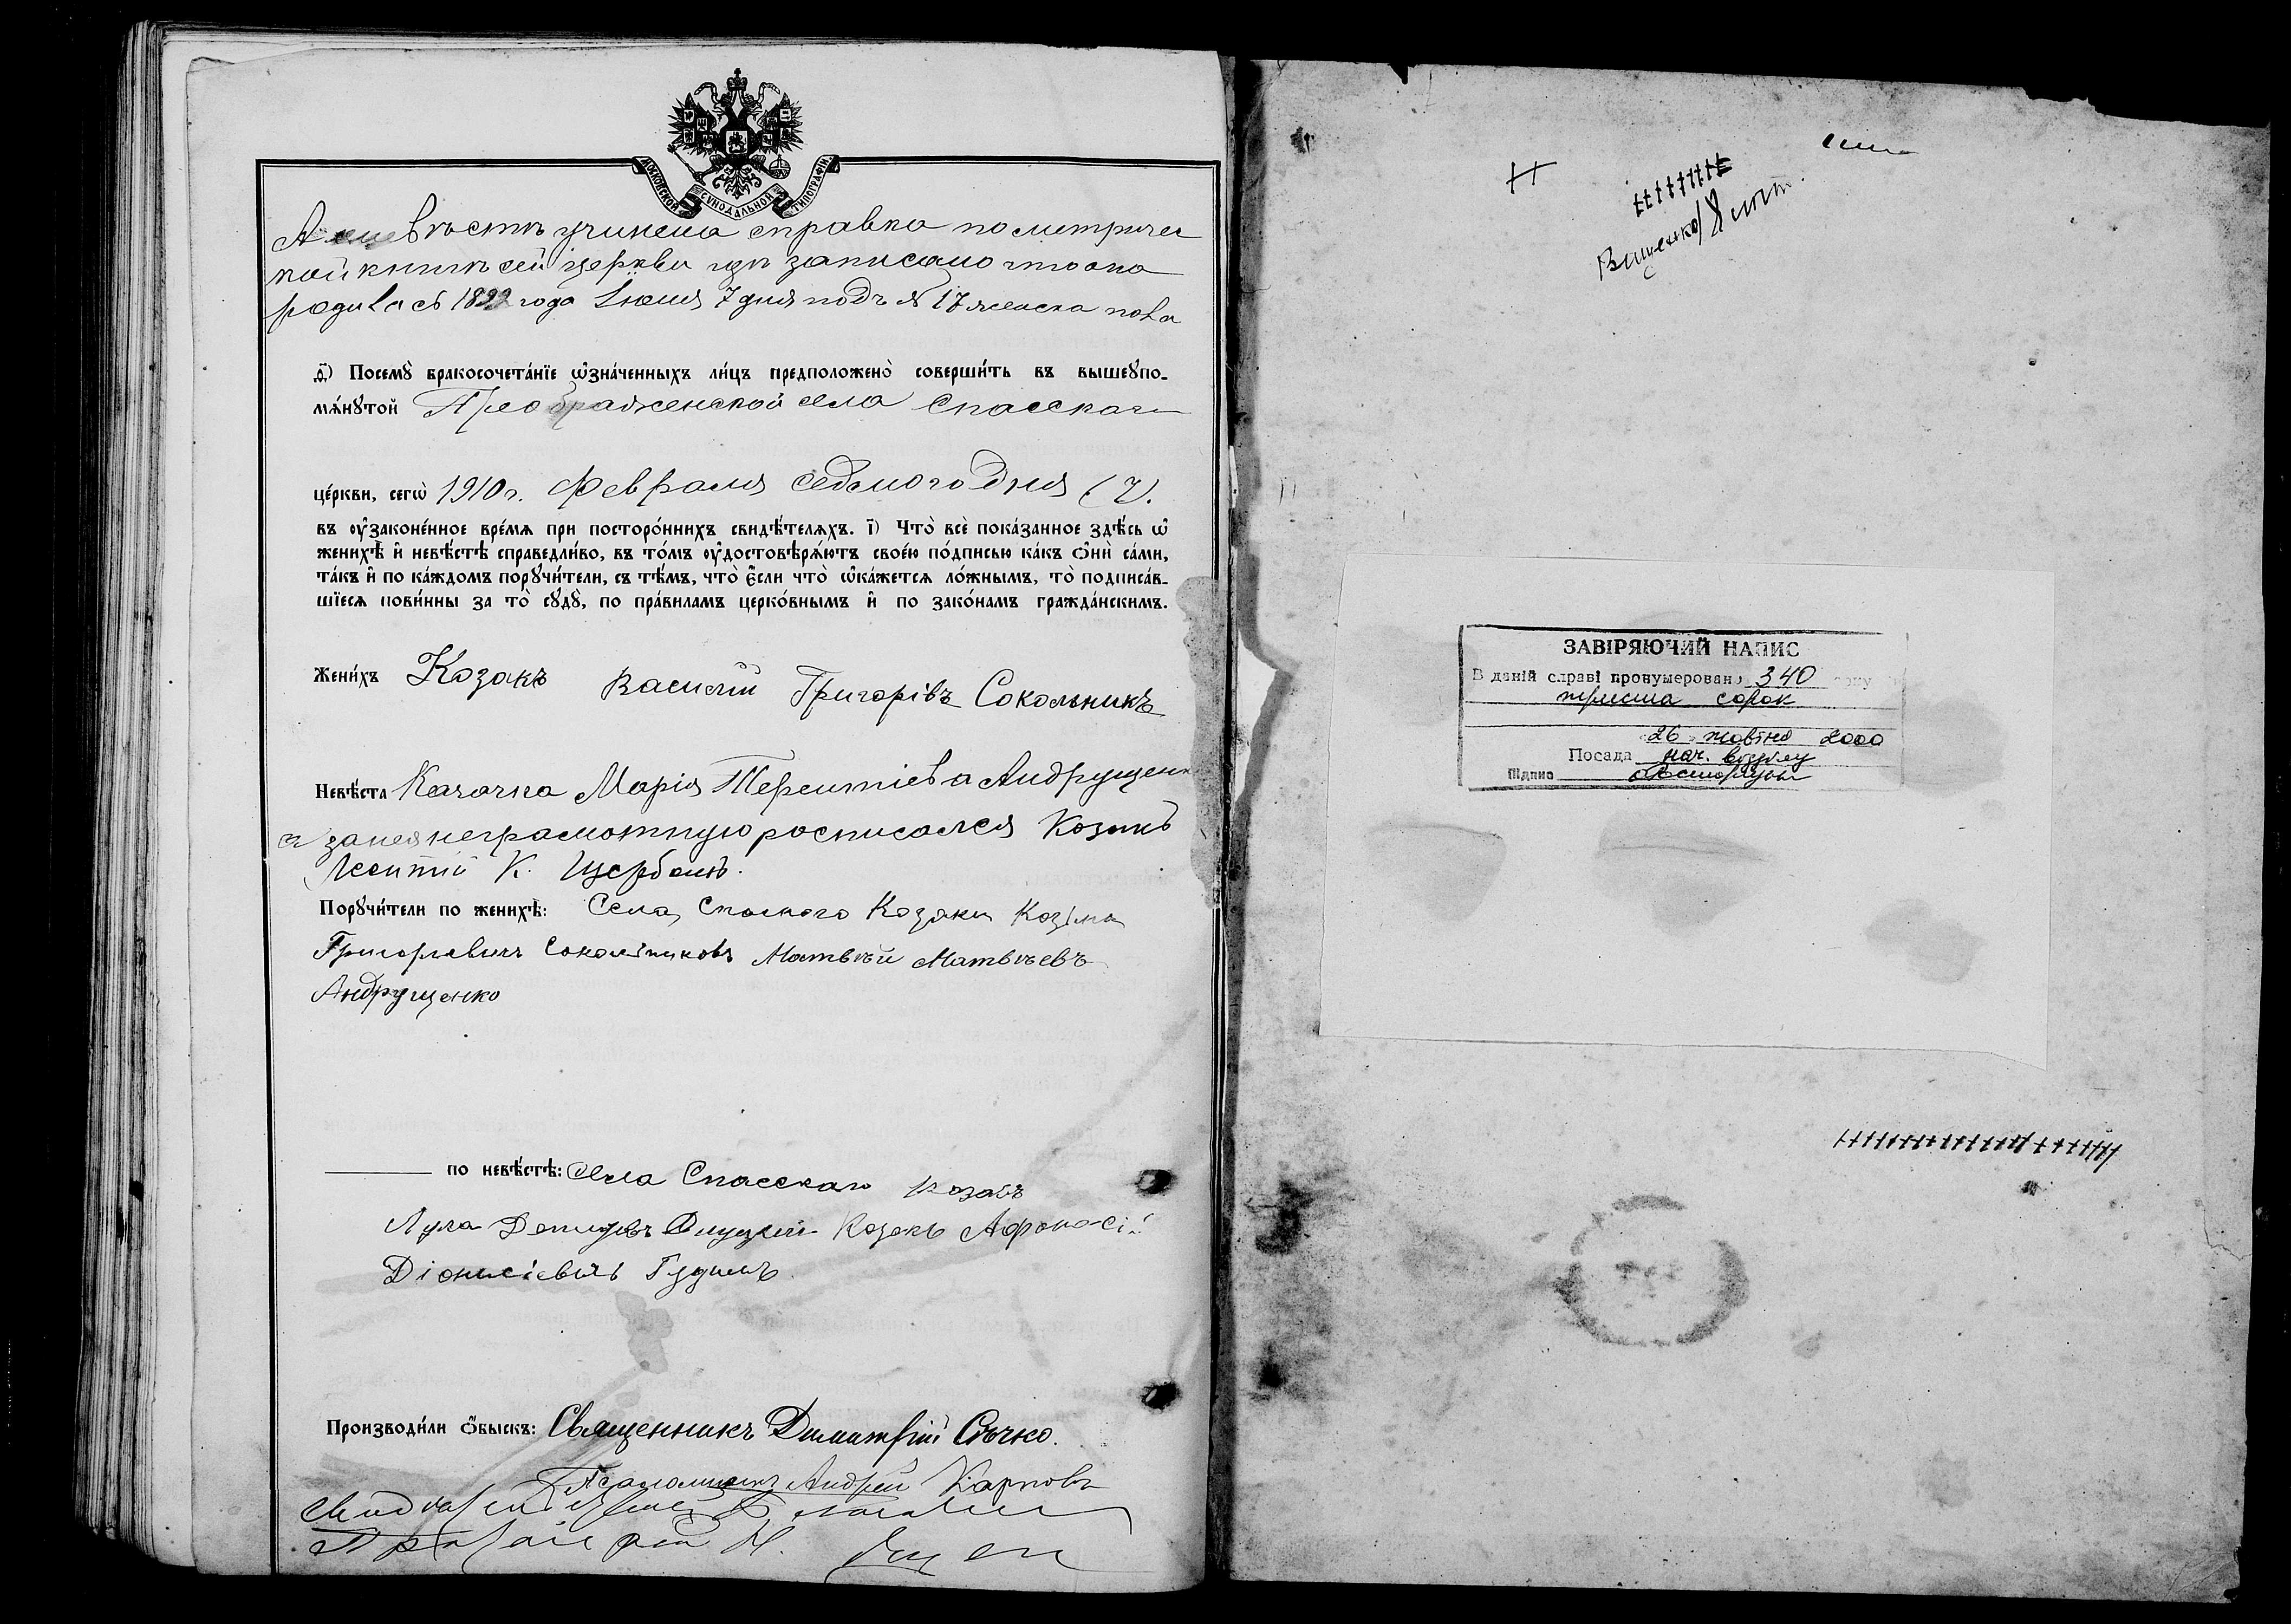 МОСКОВСКОЙ СѴНОДАЛЬНОЙ ТИПОГРАФІИ
А невѣстѣ учинена справка по метричес
кой книгѣ сей церкви гдѣ записано что она
родилась года Іюля 7 дня подъ № 17 женска пола
д҃) Посемꙋ̀ бракосочета́нїе ѡ҆зна́ченныхъ ли́цъ предположено̀ соверши́ть въ вышеꙋпо-
мѧ́нꙋтой Преображенской села Спасскаго
це́ркви, сегѡ̀ 1910 г. Февраля седьмого Дня (7).
въ ᲂу҆законе́нное вре́мѧ при посторо́ннихъ свидѣ́телѧхъ. і҃) Что̀ всѐ пока́занное здѣ́сь ѡ҆
женихѣ̀ и҆ невѣ́стѣ справедли́во, въ то́мъ ᲂу҆достовѣрѧ́ютъ свое́ю по́дписью ка́къ ѻ҆нѝ са́ми,
та́къ и҆ по ка́ждомъ порꙋчи́тели, съ тѣ́мъ, что̀ є҆́сли что̀ ѡ҆ка́жетсѧ ло́жнымъ, то̀ подписа́в-
шїесѧ пови́нны за то̀ сꙋдꙋ̀, по пра́виламъ церко́внымъ и҆ по зако́намъ гражда́нскимъ.
Жени́хъ Козакъ Василій Григорівъ Сокольникъ
Невѣ́ста Казачка Марія Терентіева Андрущенк
а за нея неграмотную росписался Козакъ
Леонтій К. Щербань.
Порꙋчи́тели по женихѣ̀: Села Спаского Козаки Козіма
Григорьевичъ Матвѣй Матвѣевъ
Андрущенко
по невѣ́стѣ: Села Спасскаго Козакъ
Лука Козакъ Афонасій
Діонисіевичъ Гудимъ
Производи́ли ѻ҆́быскъ: Священникъ Димитрій Сѣчко.
Псаломщикъ Андрей Карповъ
Вищенко
ЗАВІРЯЮЧИЙ НАПИС
В даній справі пронумеровано 340
триста сорок
26 жовтня 2000
Посада нач. відділу
Підпис